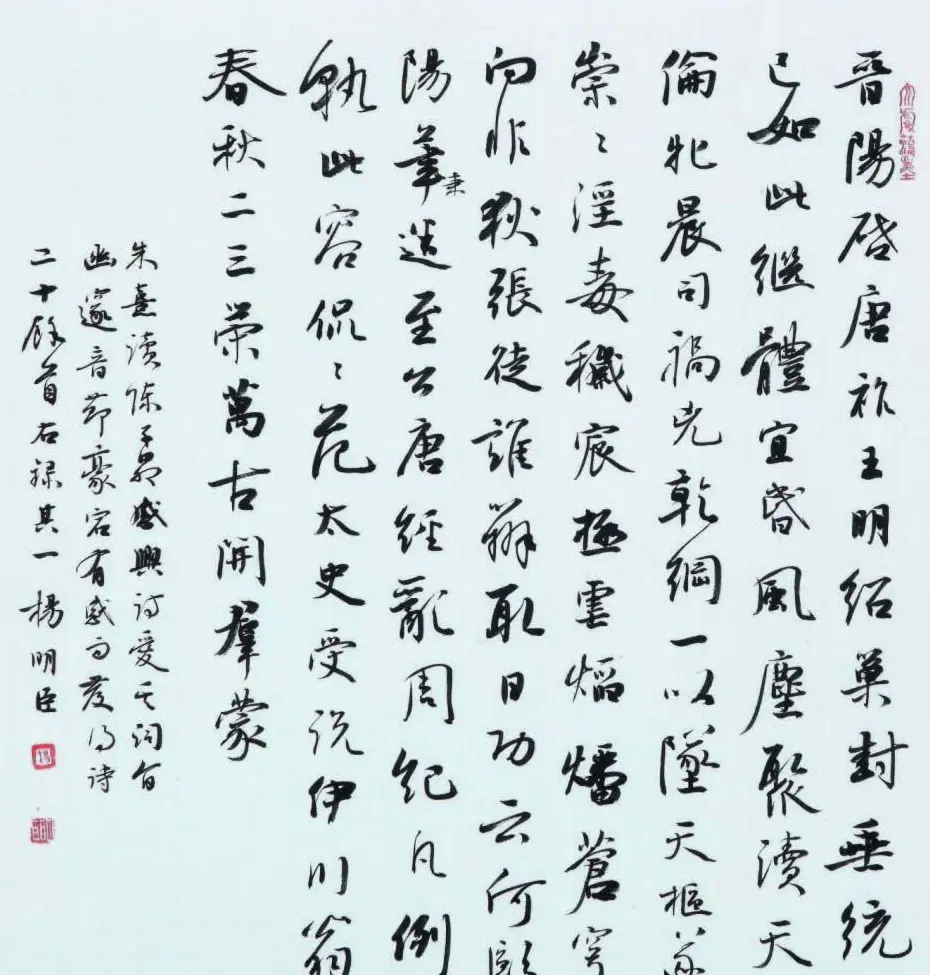 晋陽启唐祚王明紹巢封垂統
已如此繼體宜昏風塵聚瀆天
倫牝晨司禍凶乾綱一以墜天樞遂
崇〻淫毒穢宸極虐熖燔蒼穹
向非狄張徒誰辦取日功云何歐
陽筆秉迷至公唐經亂周紀凡例
孰此容侃〻范太史受說伊川翁
春秋二三策萬古開羣蒙
朱熹讀陳子昂感興詩愛其詞旨
幽邃音節豪宕有感而發得詩
二十餘首右録其一楊明臣